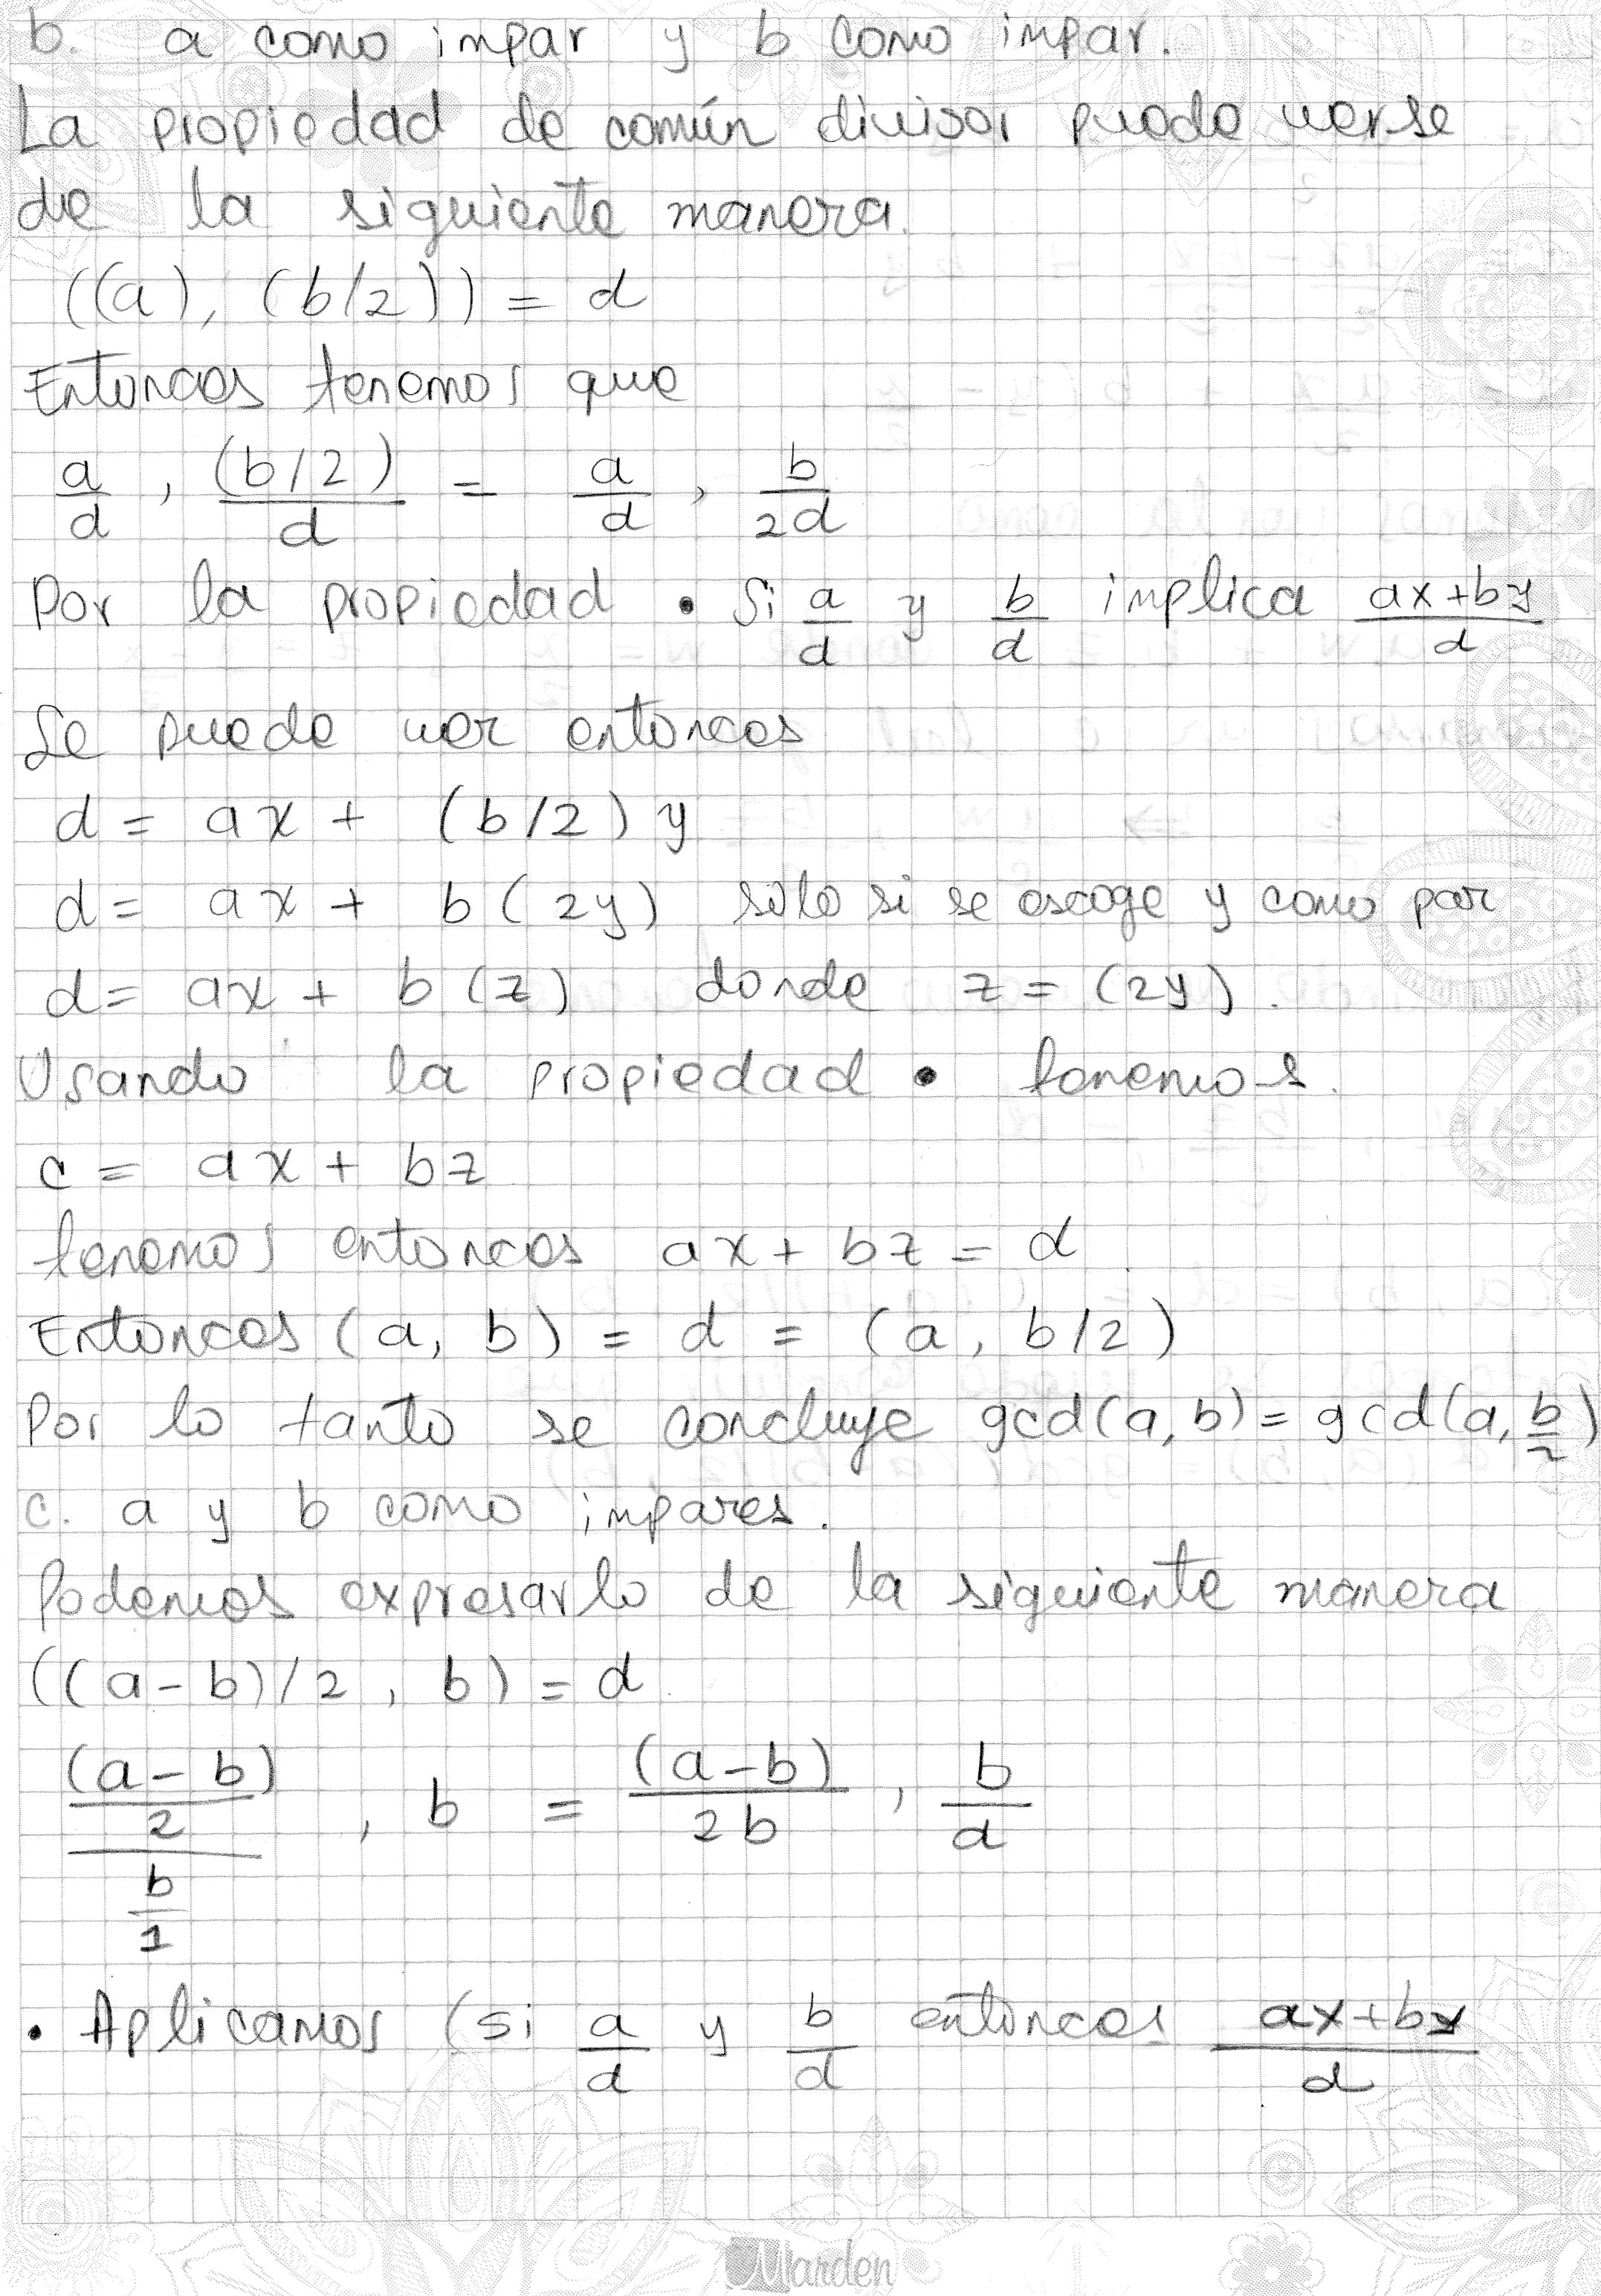 b. a como impar y b como impar.
La propiedad de común divisor puede verse
de la siguiente manera.
((a), (b/2)) = d
Entonces tenemos que
a/d , (b/2)/d = a/d , b/2d
Por la propiedad • Si a/d y b/d implica ax+by/d
Se puede ver entonces
d = ax + (b/2) y
d = ax + b (2y) solo si se escoge y como par
d = ax + b (z) donde z = (2y).
Usando la propiedad • tenemos.
c = ax + bz
tenemos entonces ax + bz = d.
Entonces (a, b) = d = (a, b/2)
Por lo tanto se concluye gcd(a,b) = gcd(a, b/2)
c. a y b como impares.
Podemos expresarlo de la siguiente manera
((a-b)/2, b) = d.
((a-b)/2)/(b/1) , b = (a-b)/2b , b/d
• Aplicamos (si a/d y b/d entonces ax+by/d
Marden